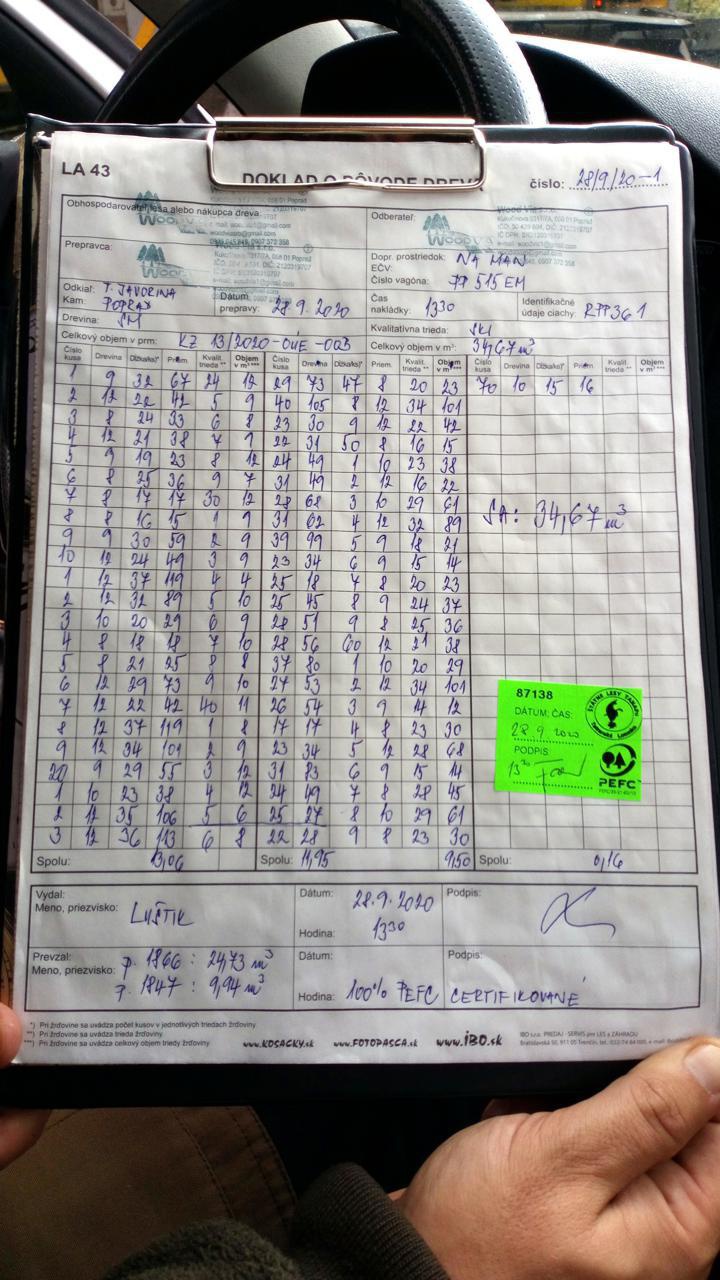 LA 43
DOKLAD O PÔVODE DREVA
číslo: 28/9/20-1
Obhospodarovateľ lesa alebo nákupca dreva:
Odberateľ:
Prepravca:
Dopr. prostriedok: NA MAN
EČV:
Číslo vagóna: PP 515 EM
Odkiaľ: T. JAVORINA
Kam: POPRAD
Dátum prepravy: 28.9.2020
Čas nakládky: 13 30
Identifikačné údaje ciachy: RPP361
Drevina: SM
Kvalitatívna trieda: SKI
Celkový objem v prm: KZ 13/2020-OÚE-OQB
Celkový objem v m³: 34,67 m³
Číslo kusa Drevina Dĺžka/ks)* Priem. Kvalit. trieda ** Objem v m³ *** Číslo kusa Drevina Dĺžka/ks)* Priem. Kvalit. trieda ** Objem v m³ *** Číslo kusa Drevina Dĺžka/ks)* Priem. Kvalit. trieda ** Objem v m³ ***
1 9 32 67 24 12 29 73 47 8 20 23 70 10 15 16
2 12 22 42 5 9 40 105 8 12 34 101
3 8 24 33 6 8 23 30 9 12 22 42
4 12 21 38 7 9 22 31 50 8 16 15
5 9 19 23 8 12 24 49 1 10 23 38
6 8 25 36 9 7 31 49 2 12 16 22
7 8 17 17 30 12 28 68 3 10 29 61
8 8 16 15 1 9 31 62 4 12 32 89
9 9 30 59 2 9 39 99 5 9 18 21
10 12 24 49 3 9 23 34 6 9 15 14
1 12 37 119 4 4 25 18 7 8 20 23
2 12 32 89 5 10 25 45 8 9 24 37
3 10 20 29 6 9 28 51 9 8 25 36
4 8 18 18 7 10 28 56 60 12 21 38
5 8 21 25 8 8 37 80 1 10 20 29
6 12 29 73 9 10 27 53 2 12 34 101
7 12 22 42 40 11 26 54 3 9 14 12
8 12 37 119 1 8 17 17 4 8 23 30
9 12 34 101 2 9 23 34 5 12 28 68
20 9 29 55 3 12 31 83 6 9 15 14
1 10 23 38 4 12 24 49 7 8 28 45
2 12 35 106 5 6 25 27 8 10 29 61
3 12 36 113 6 8 22 28 9 8 23 30
SA: 34,67 m³
87138
DÁTUM, ČAS:
28 9 2020
PODPIS:
13 30
ŠTÁTNE LESY TANAPU
PEFC
Spolu: 13,06 Spolu: 11,95 9,50 Spolu: 0,16
Vydal:
Meno, priezvisko: LUŠTIK
Dátum: 28.9.2020
Hodina: 13 30
Podpis:
Prevzal:
Meno, priezvisko:
p. 1866 : 24,73 m³
p. 1847 : 9,94 m³
Dátum:
Podpis:
Hodina: 100% PEFC CERTIFIKOVANÉ
*) Pri žrďovine sa uvádza počet kusov v jednotlivých triedach žrďoviny
**) Pri žrďovine sa uvádza trieda žrďoviny
***) Pri žrďovine sa uvádza celkový objem triedy žrďoviny
www.KOSACKY.sk www.FOTOPASCA.sk www.iBO.sk
IBO s.r.o. PREDAJ - SERVIS pre LES a ZÁHRADU